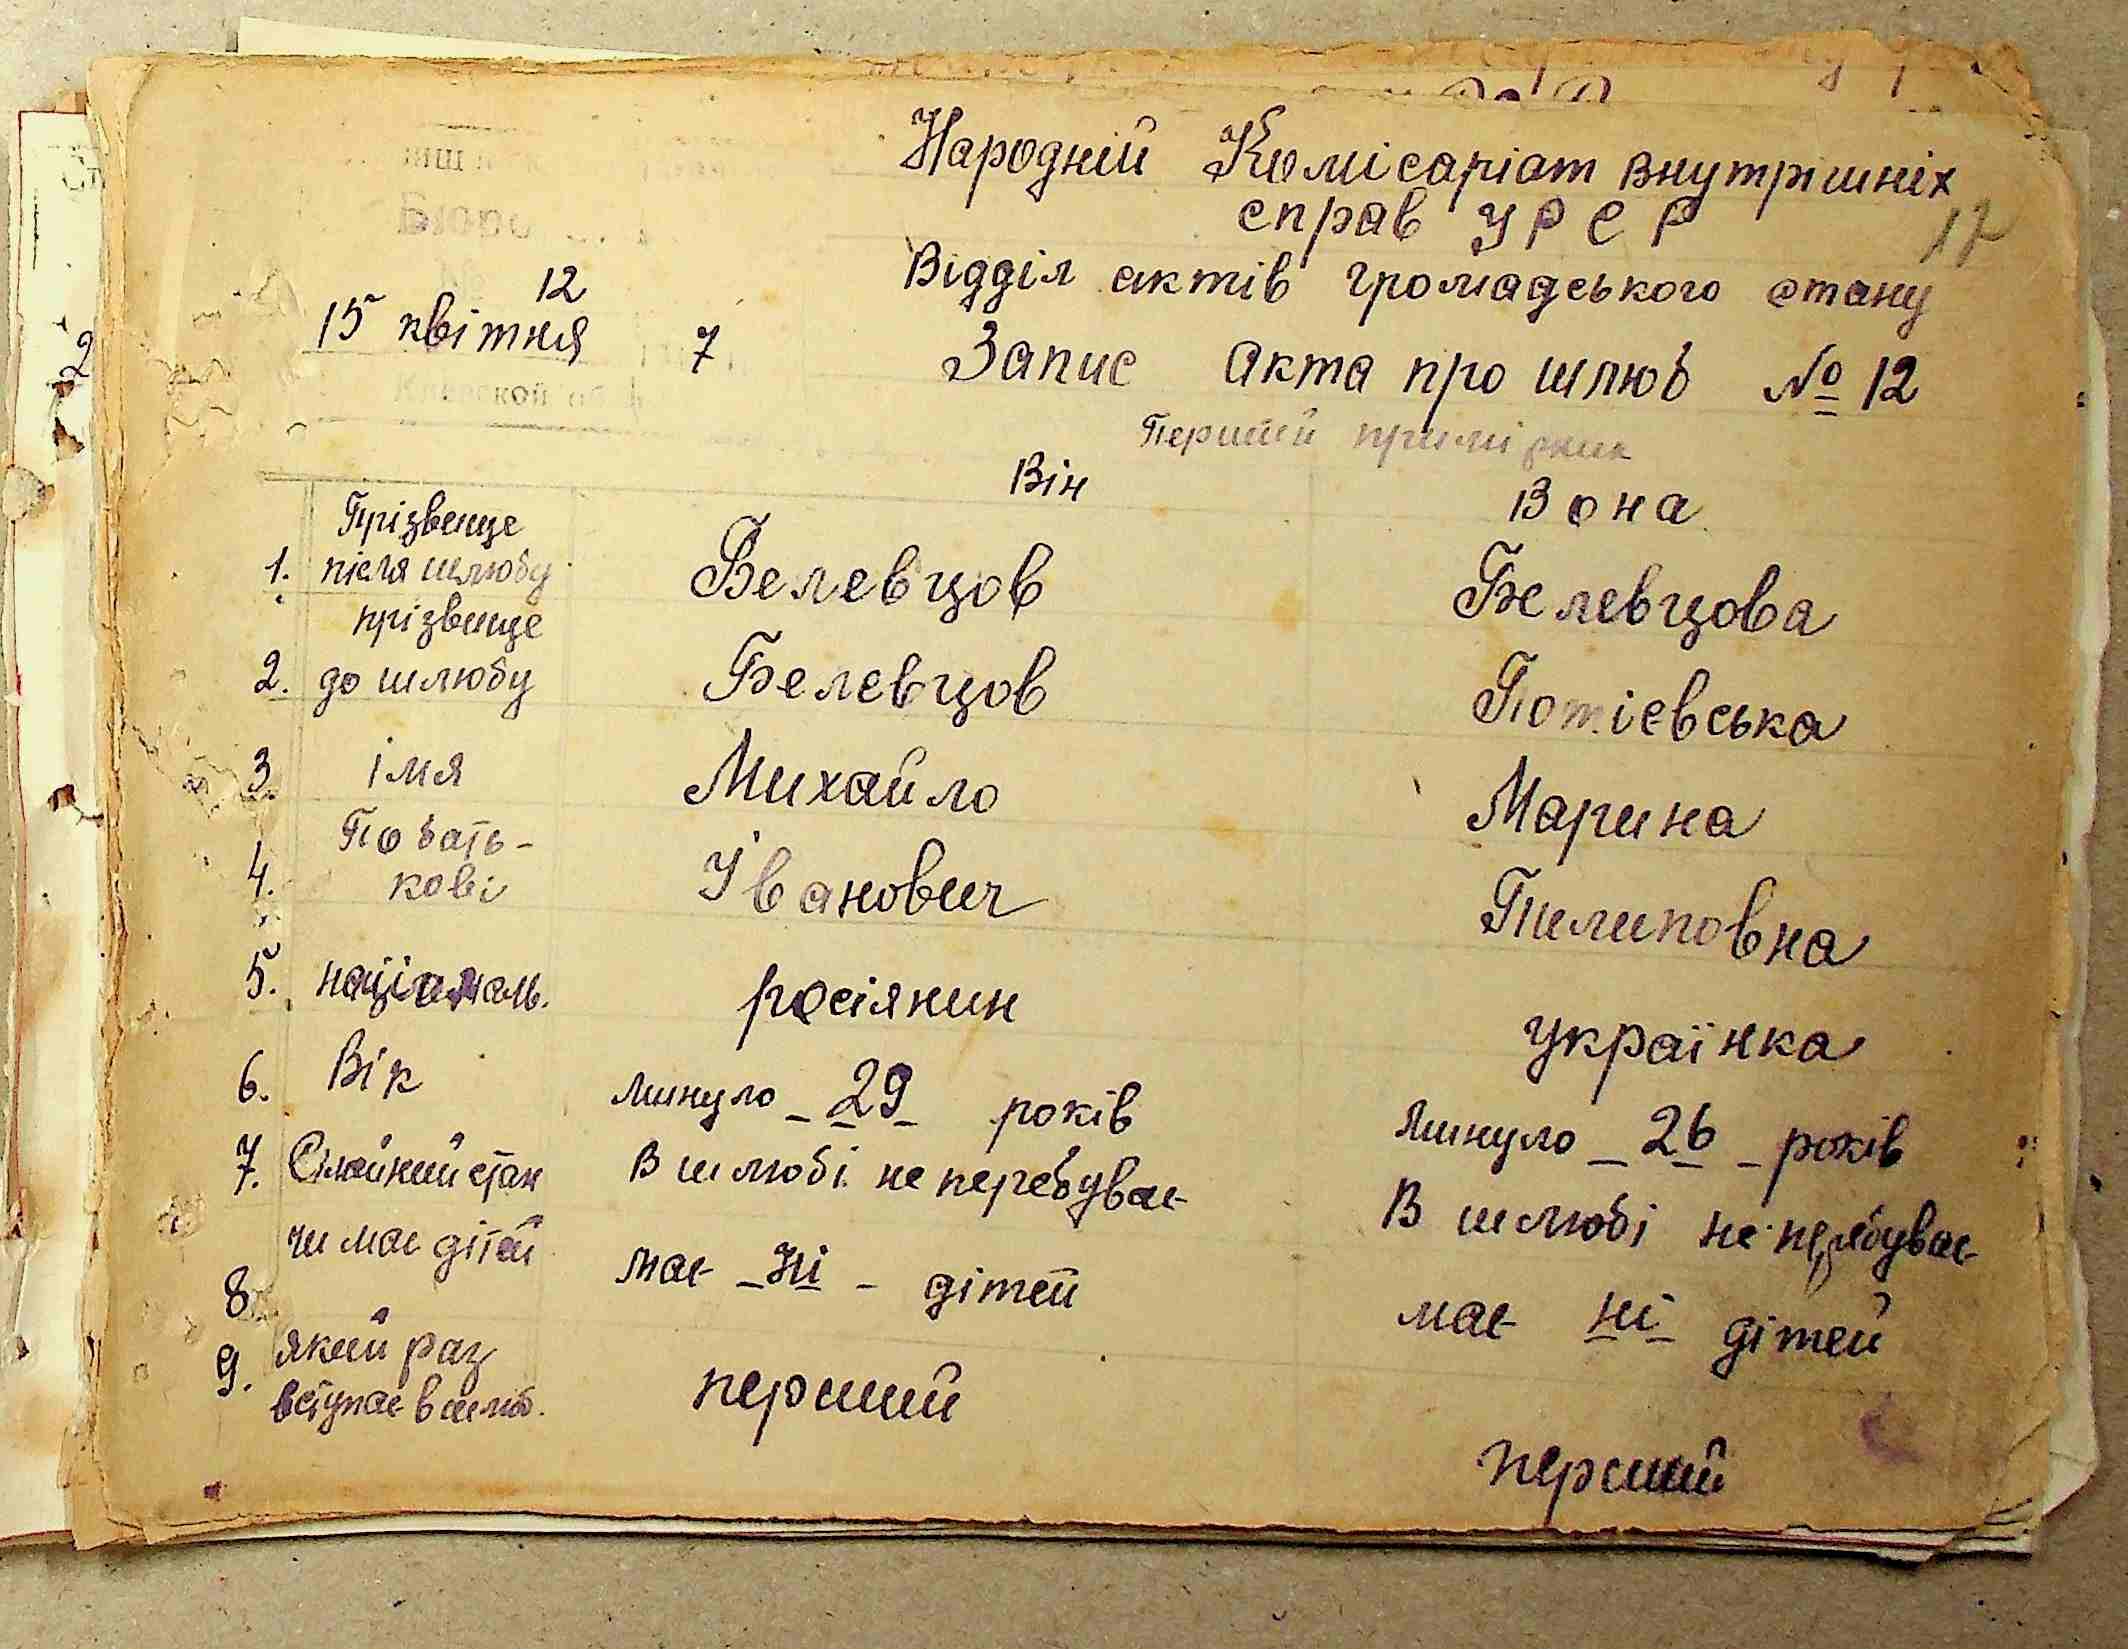 Народній Комісаріат внутрішніх
справ УРСР
17
Відділ актів громадського стану
12
15 квітня 7
Запис акта про шлюб № 12
Перший примірник
Він Вона
Прізвище
1. після шлюбу Белевцов Белевцова
прізвище
2. до шлюбу Белевцов Потієвська
3. імя Михайло Марина
По бать-
4. кові Іванович Пилиповна
5. національ. росіянин українка
6. Вік минуло - 29 - років минуло - 26 - років
7. Сімейний стан В шлюбі не перебуває В шлюбі не перебуває
чи має дітей
8. має - ні - дітей має ні дітей
9. який раз
вступає в шлюб. перший перший